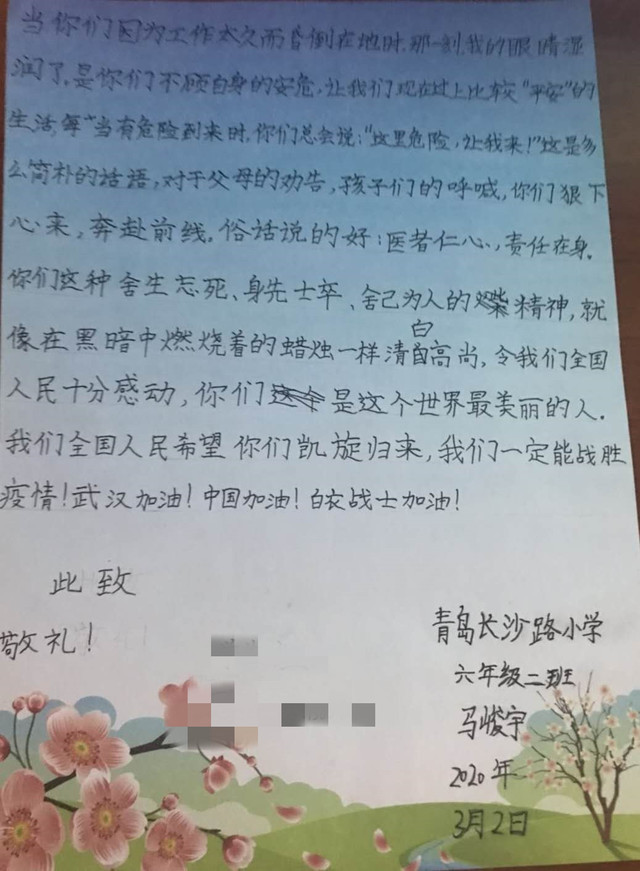 当你们因为工作太久而昏倒在地时,那一刻,我的眼睛湿
润了,是你们不顾自身的安危,让我们现在过上比较“平安”的
生活,每当有危险到来时,你们总会说:“这里危险,让我来!”这是多
么简朴的话语,对于父母的劝告,孩子们的呼喊,你们狠下
心来,奔赴前线。俗话说的好:医者仁心,责任在身。
你们这种舍生忘死、身先士卒、舍己为人的精神,就
像在黑暗中燃烧着的蜡烛一样清白高尚,令我们全国
人民十分感动,你们是这个世界最美丽的人.
我们全国人民希望你们凯旋归来,我们一定能战胜
疫情!武汉加油!中国加油!白衣战士加油!
此致
敬礼!
青岛长沙路小学
六年级二班
马峻宇
2020年
3月2日